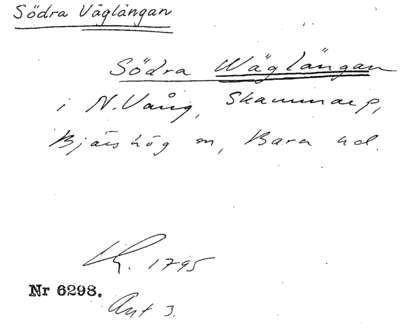 Södra Våglängan
Södra Wäglängan
i N. Vång, Skammarp,
Bjärshög sn, Bara hd.
Lk. 1795
Nr 6298.
Akt 3.